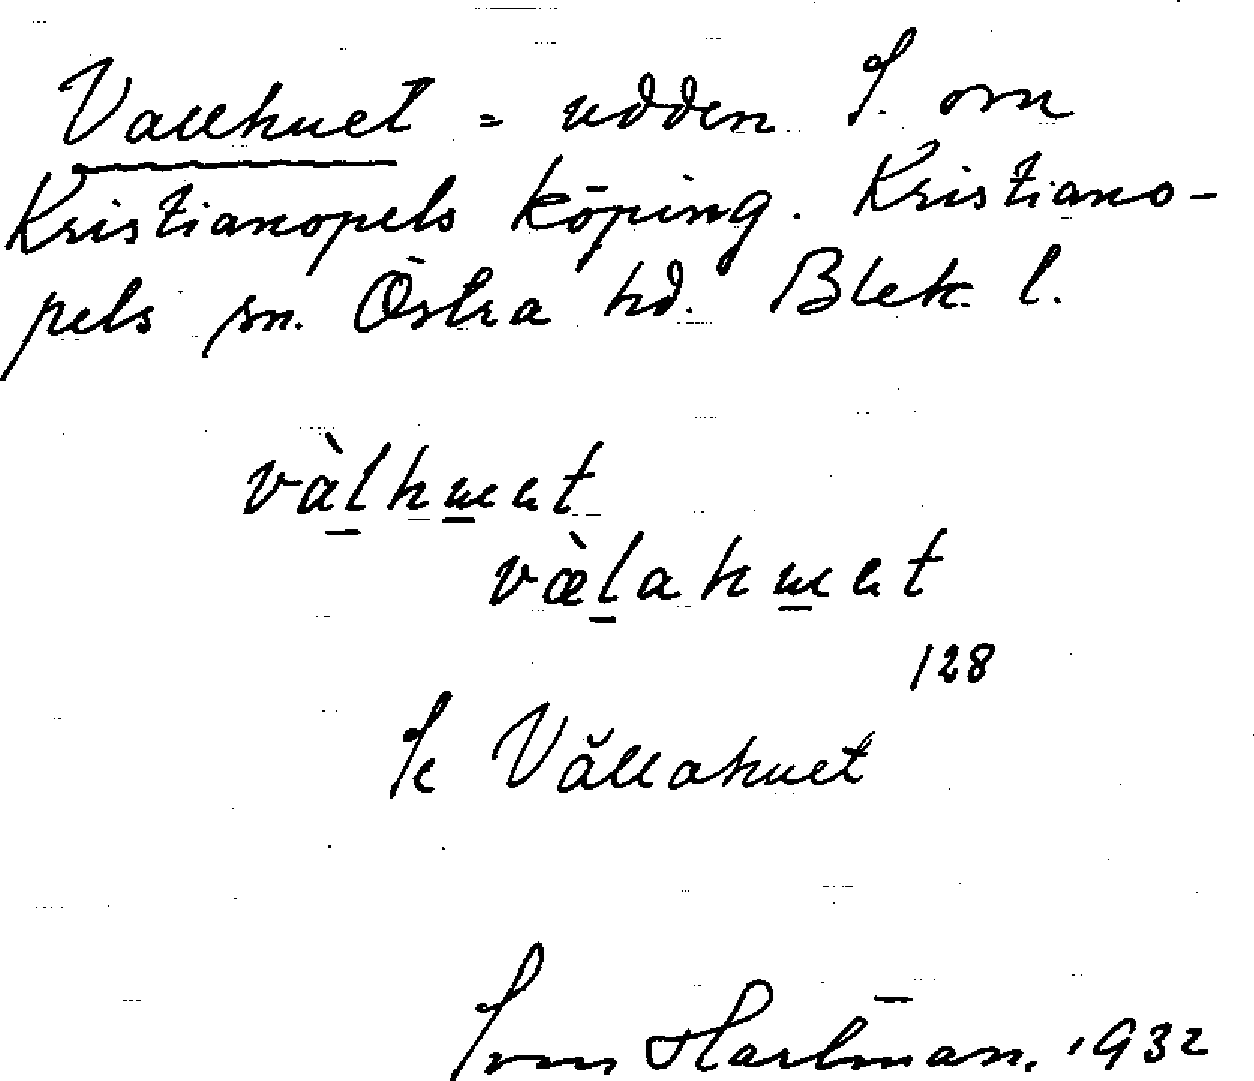 Vallhuet = udden S. om
Kristianopels köping. Kristiano-
pels sn. Östra hd. Blek. l.
vàlhuet
vàlahuet
128
Vällahuet
Hartman, 1932